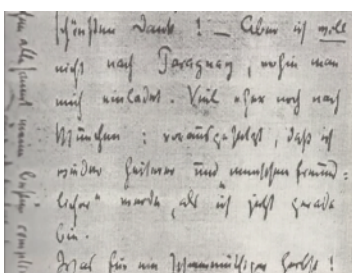 schönsten Dank! — Aber ich will
nicht nach Paraguay, wohin man
mich einladet. Viel eher noch nach
München: vorausgesetzt, daß ich
wieder heiterer und menschenfreund-
licher“ werde, als ich jetzt gerade
bin.
Was für ein schwermüthiger Herbst!